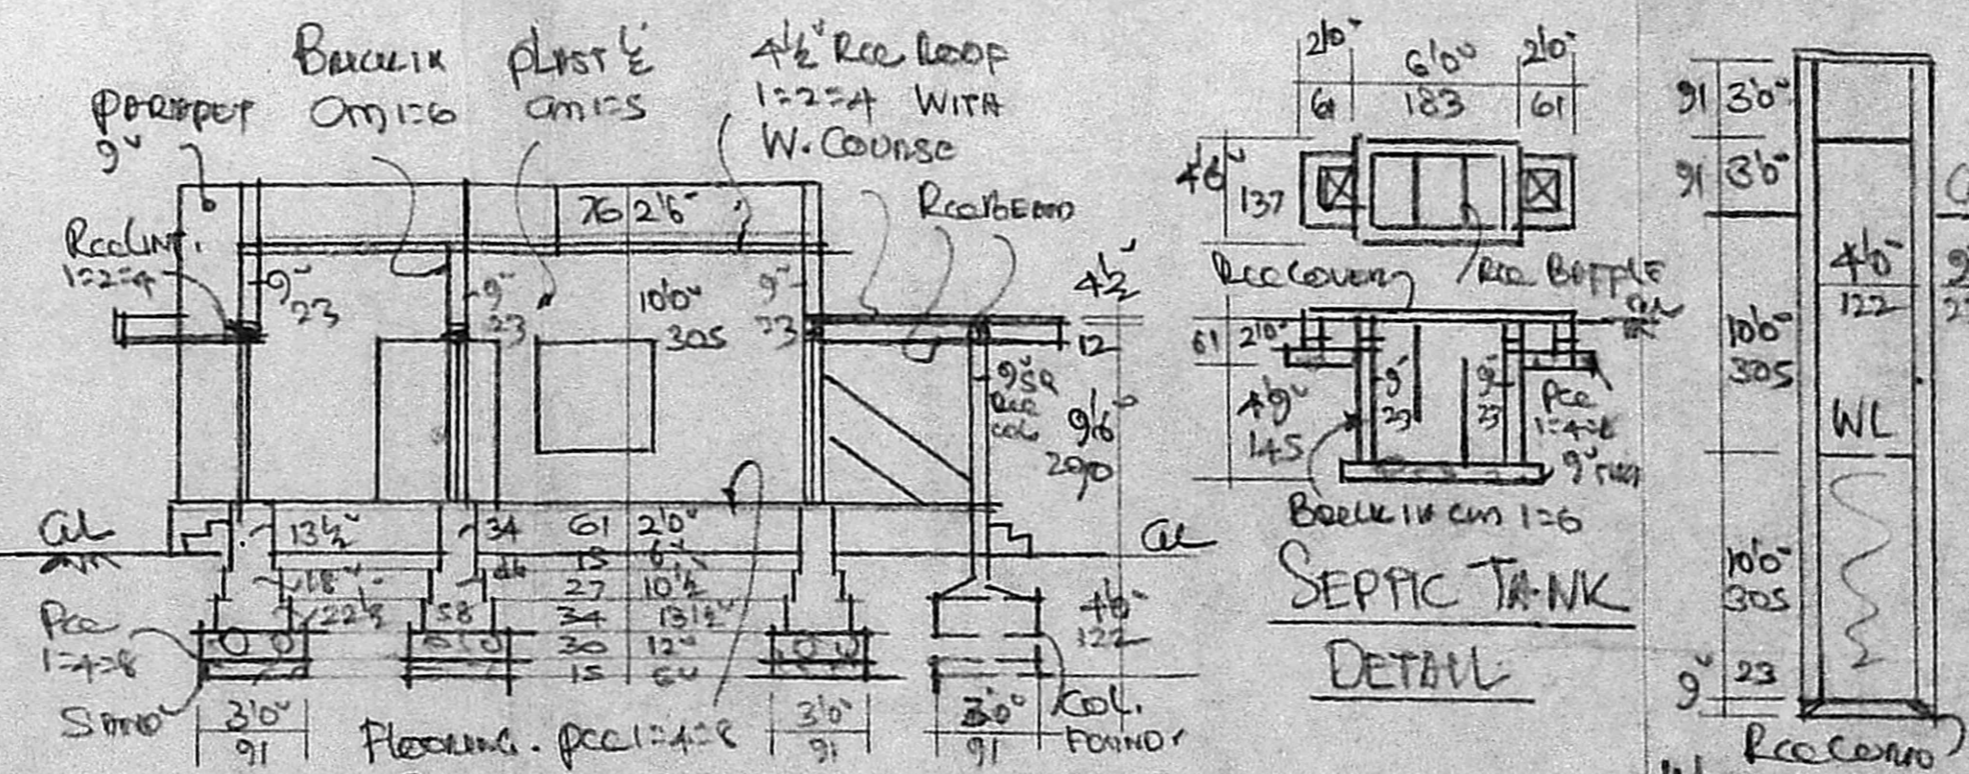 PARAPET
9"
BRICK IN
CM 1=6
PLAST IN
CM 1=5
4½" RCC ROOF
1=2=4 WITH
W. COURSE
RCC BEAM
RCC LINT.
1=2=4
76 2'6"
9"
23
9"
23
10'0"
305
9"
23
4½"
12
9" SQ
RCC
COL
9'6"
290
GL
13½"
34
61 2'0"
15 6"
27 10½"
34 13½"
30 12"
15 6"
18"
46
22½
58
GL
4'0"
122
PCC
1=4=8
SAND
3'0"
91
FLOORING. PCC 1=4=8
3'0"
91
3'0"
91
COL.
FOUND.
2'0" 6'0" 2'0"
61 183 61
4'6"
137
RCC COVER
RCC BAFFLE
GL
61 2'0"
4'9"
145
9"
23
9"
23
PCC
1=4=8
9" THICK
BRICK IN CM 1=6
SEPTIC TANK
DETAIL
91 3'0"
91 3'0"
10'0"
305
4'0"
122
WL
10'0"
305
9" 23